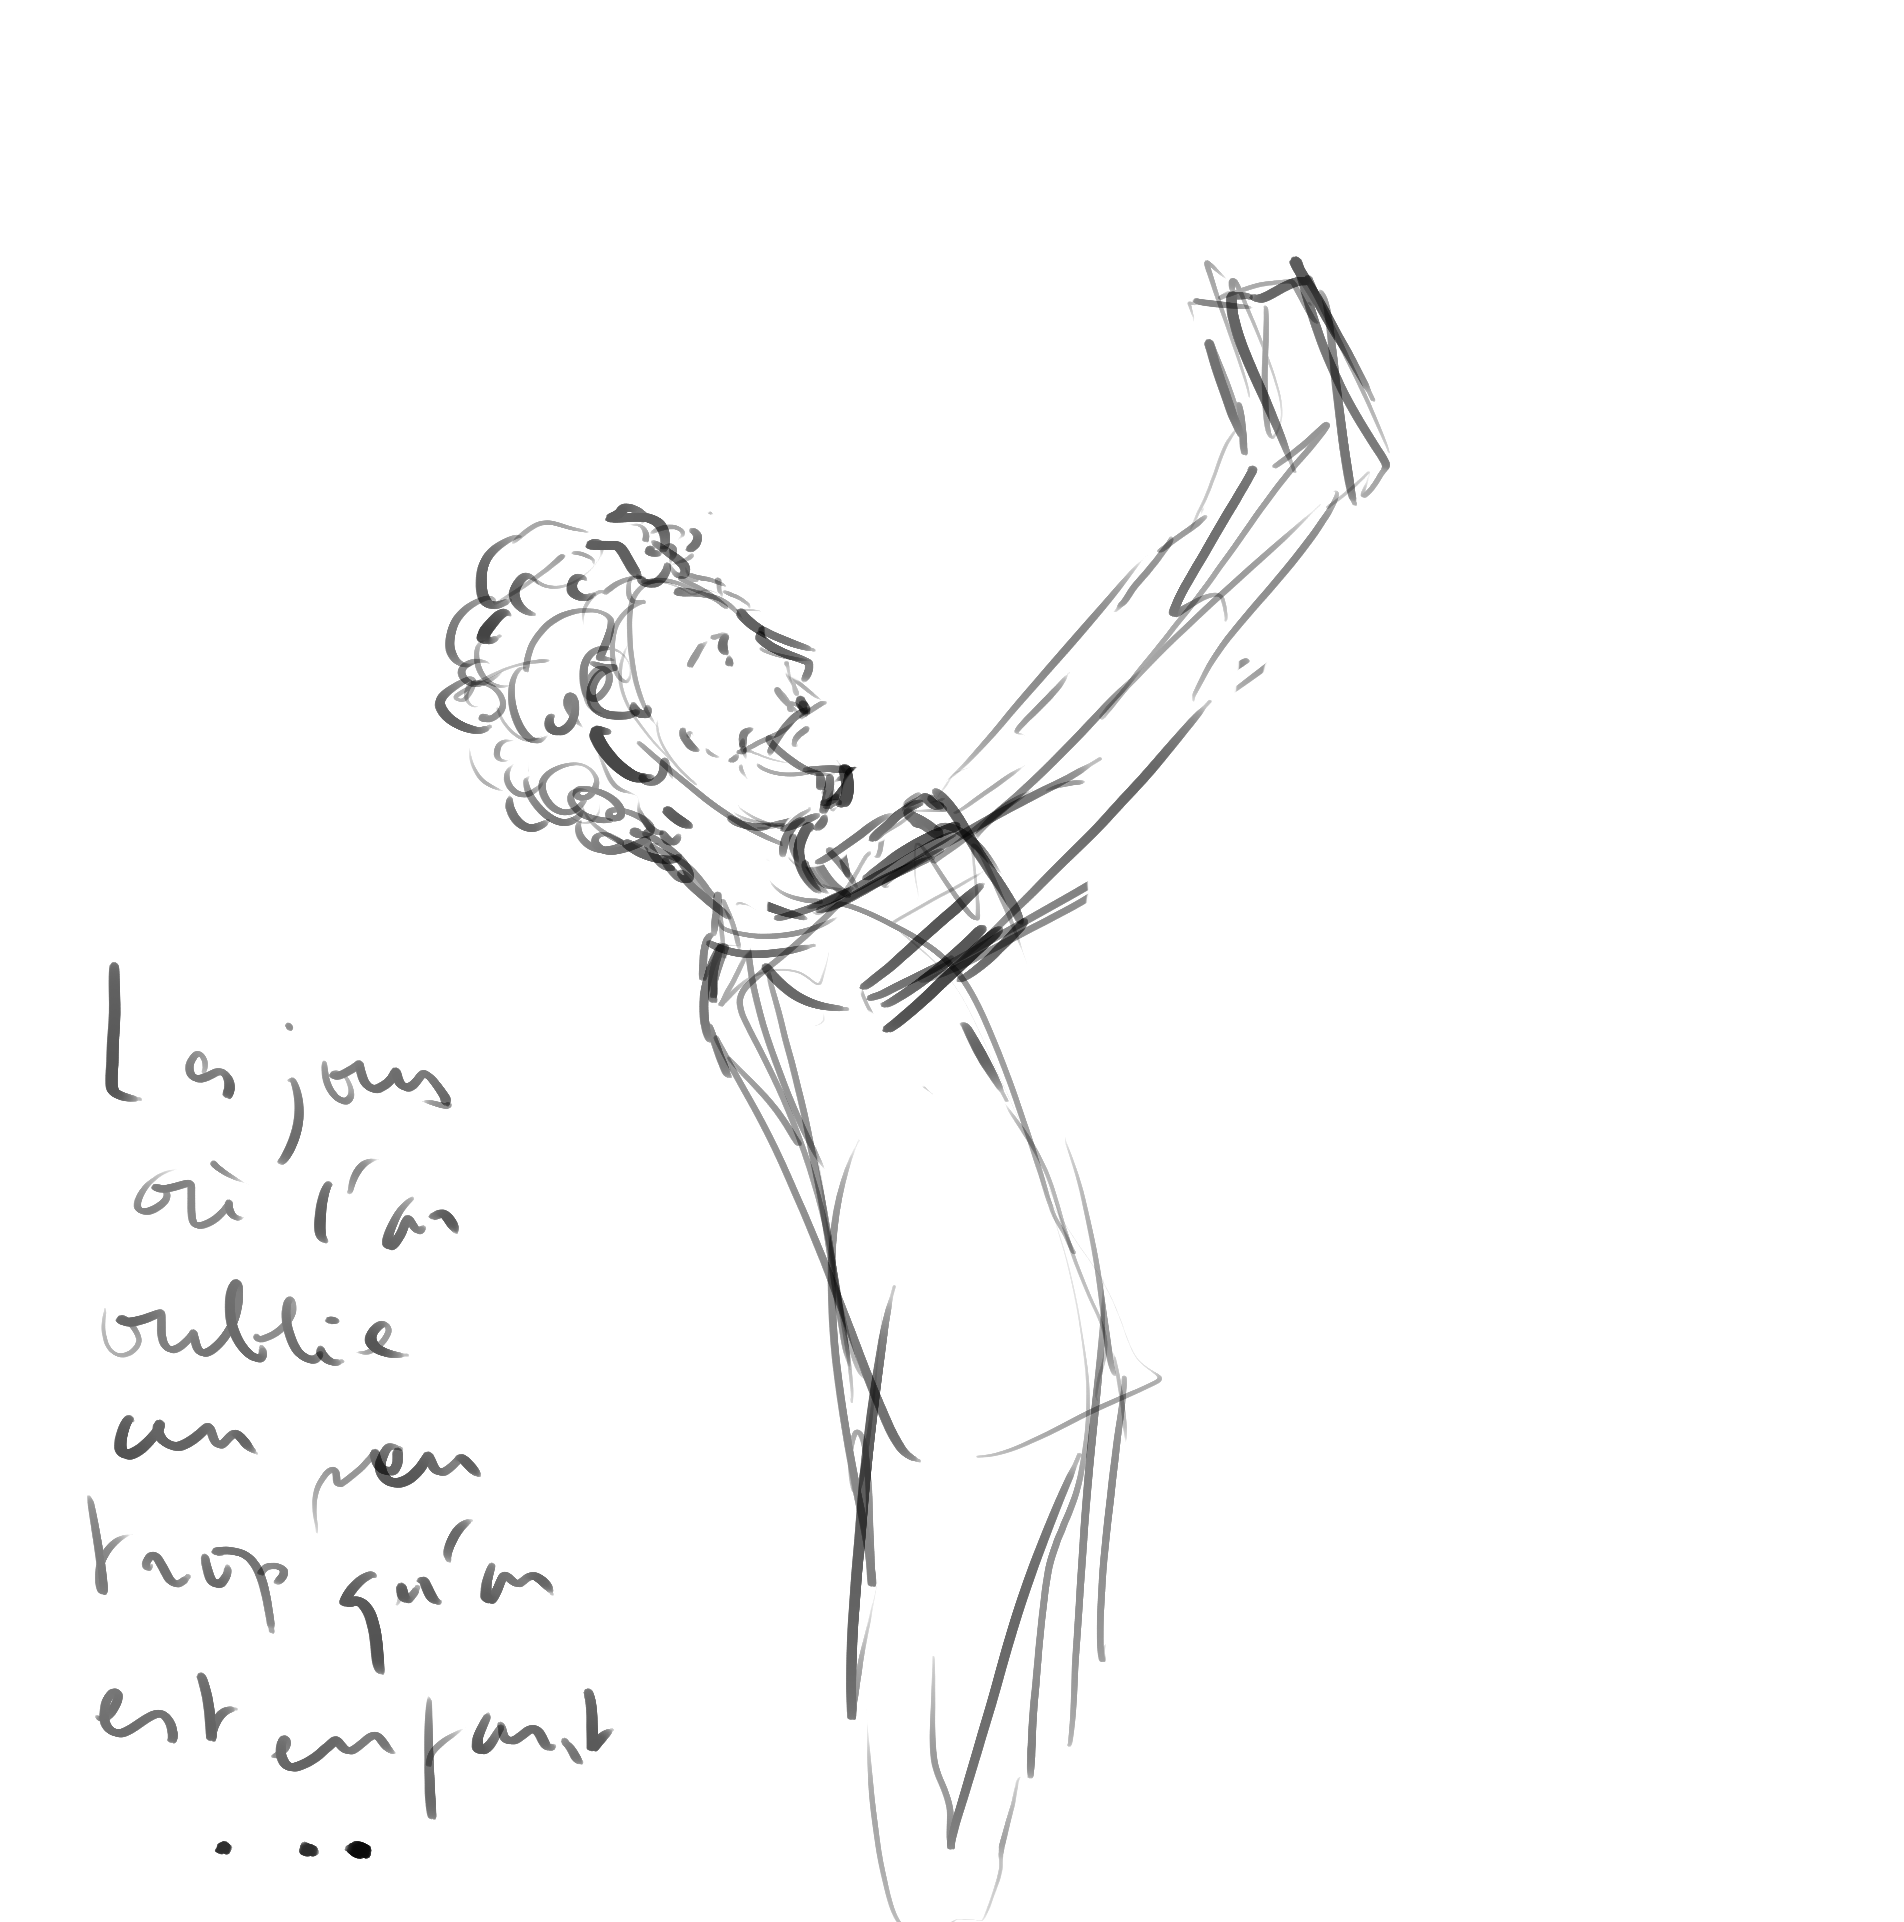 Les jours
où l'on
oublie
un peu
trop qu'on
est enfant
...